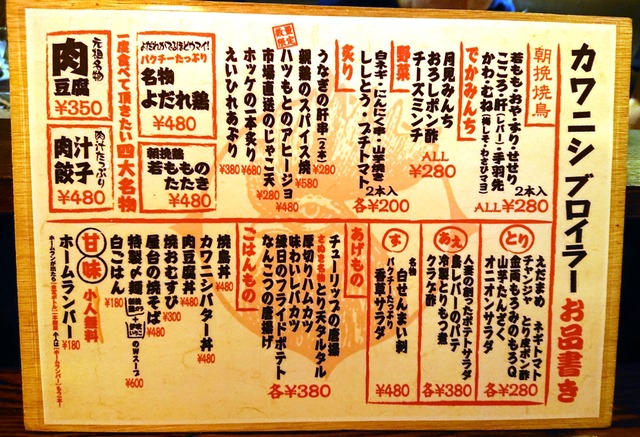 カワニシブロイラー お品書き
朝挽焼鳥
若もも・おや・すり・せせり
こころ・肝(レバー)・手羽先
かわ・むね(梅しそ・わさびマヨ)
2本入
ALL¥280
でかみんち
月見みんち
おろしポン酢
チーズミンチ
ALL
¥280
野菜
白ネギ・にんにく串・山芋焼き
ししとう・プチトマト
2本入
各¥200
炙り
うなぎの肝串(2本) ¥280
親鶏のスパイス焼 ¥580
数量限定
ハツもとのアヒージョ ¥480
市場直送のじゃこ天 ¥280
ホッケの一本炙り ¥680
えいひれあぶり ¥380
よだれがでるほどウマイ!
パクチーたっぷり
名物
よだれ鶏
¥480
朝挽鶏
若もものたたき
¥480
一度食べて頂きたい四大名物
元祖名物
肉豆腐
¥350
肉汁たっぷり
肉汁餃子
¥480
とり
えだまめ ネギトマト
チャンジャ とり皮ポン酢
金両もろみのもろQ
山芋たんざく
オニオンサラダ
各¥280
あえ
人妻の創ったポテトサラダ
鳥レバーのパテ
冷製とりもつ煮
クラゲ酢
各¥380
す
名物
白せんまい刺
パクチーたっぷり
香草サラダ
¥480
あげもの
チューリップの唐揚
とり天タルタル
厚切りハムカツ
味わいキャベツ
縁日のフライドポテト
なんこつの唐揚げ
各¥380
ごはんもの
焼鳥丼 ¥480
カワニシバター丼 ¥480
肉豆腐丼 ¥480
焼おむすび ¥300
屋台の焼そば ¥480
特製〆麺 のWスープ ¥600
白ごはん ¥180
甘味
小人無料
ホームランバー ¥180